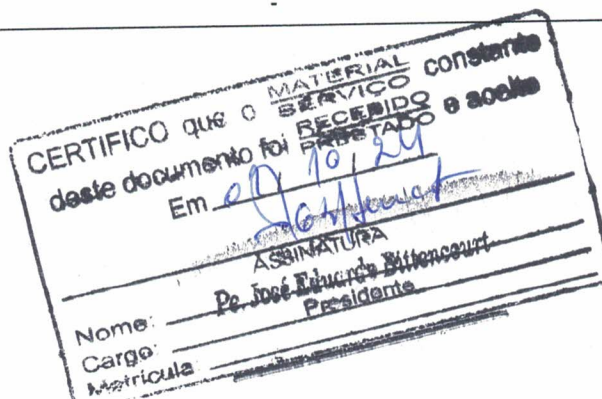 CERTIFICO que o MATERIAL SERVIÇO constante
deste documento foi RECEBIDO PRESTADO e aceito
Em 10, 24
ASSINATURA
Nome: Pe. José Eduardo Bittencourt
Cargo: Presidente
Matrícula